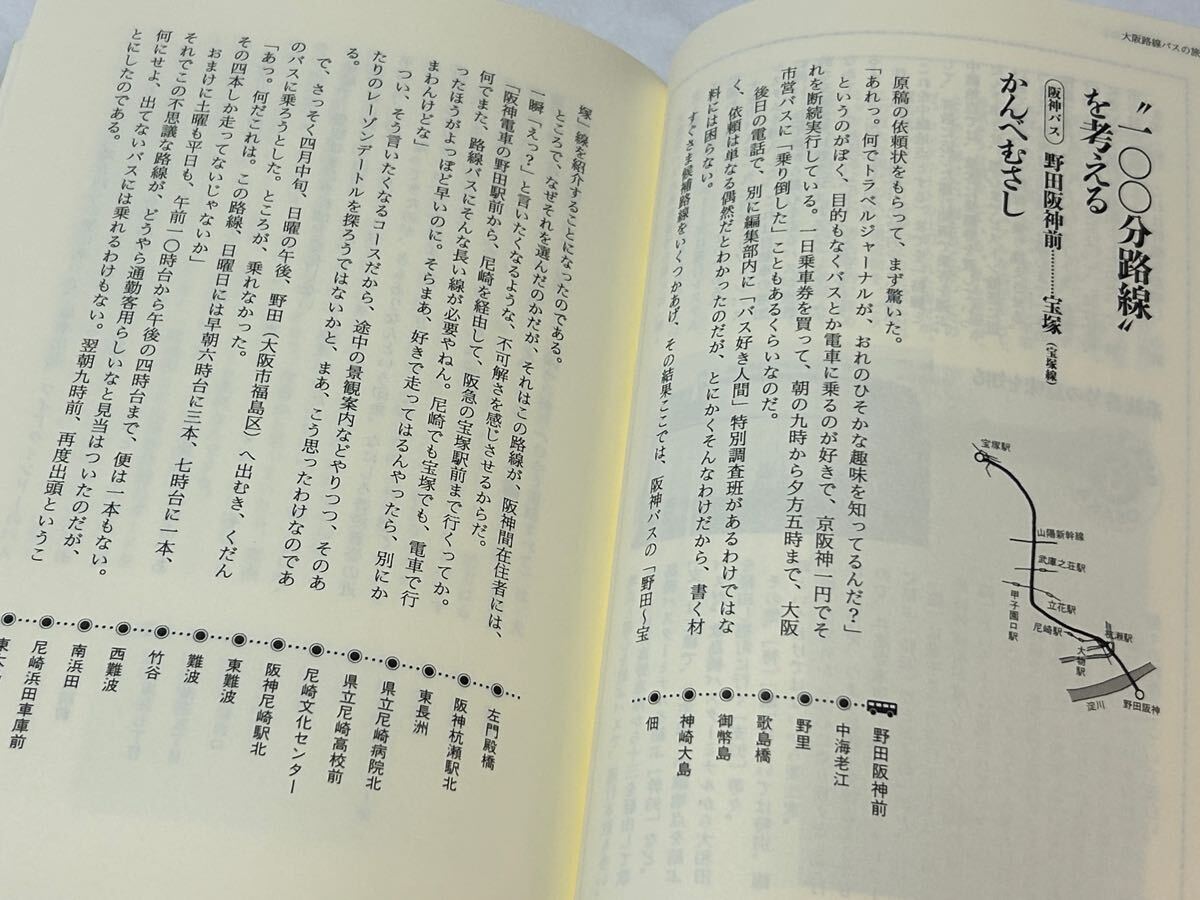 大阪路線バスの旅
〝一〇〇分路線〟
を考える
阪神バス 野田阪神前…………宝塚(宝塚線)
かんべむさし
宝塚駅
山陽新幹線
武庫之荘駅
立花駅
甲子園口駅
尼崎駅
杭瀬駅
大物駅
淀川
野田阪神
原稿の依頼状をもらって、まず驚いた。
「あれっ。何でトラベルジャーナルが、おれのひそかな趣味を知ってるんだ?」
というのがぼく、目的もなくバスとか電車に乗るのが好きで、京阪神一円でそ
れを断続実行している。一日乗車券を買って、朝の九時から夕方五時まで、大阪
市営バスに「乗り倒した」こともあるくらいなのだ。
後日の電話で、別に編集部内に「バス好き人間」特別調査班があるわけではな
く、依頼は単なる偶然だとわかったのだが、とにかくそんなわけだから、書く材
料には困らない。
すぐさま候補路線をいくつかあげ、その結果ここでは、阪神バスの「野田〜宝
野田阪神前
中海老江
野里
歌島橋
御幣島
神崎大島
佃
塚」線を紹介することになったのである。
ところで、なぜそれを選んだのかだが、それはこの路線が、阪神間在住者には、
一瞬「えっ?」と言いたくなるような、不可解さを感じさせるからだ。
「阪神電車の野田駅前から、尼崎を経由して、阪急の宝塚駅前まで行くってか。
何でまた、路線バスにそんな長い線が必要やねん。尼崎でも宝塚でも、電車で行
ったほうがよっぽど早いのに。そらまあ、好きで走ってはるんやったら、別にか
まわんけどな」
つい、そう言いたくなるコースだから、途中の景観案内などやりつつ、そのあ
たりのレーゾンデートルを探ろうではないかと、まあ、こう思ったわけなのであ
る。
で、さっそく四月中旬、日曜の午後、野田(大阪市福島区)へ出むき、くだん
のバスに乗ろうとした。ところが、乗れなかった。
「あっ。何だこれは。この路線、日曜日には早朝六時台に三本、七時台に一本、
その四本しか走ってないじゃないか」
おまけに土曜も平日も、午前一〇時台から午後の四時台まで、便は一本もない。
それでこの不思議な路線が、どうやら通勤客用らしいなと見当はついたのだが、
何にせよ、出てないバスには乗れるわけもない。翌朝九時前、再度出頭というこ
とにしたのである。
左門殿橋
阪神杭瀬駅北
東長洲
県立尼崎病院北
県立尼崎高校前
尼崎文化センター
阪神尼崎駅北
東難波
難波
西難波
竹谷
南浜田
尼崎浜田車庫前